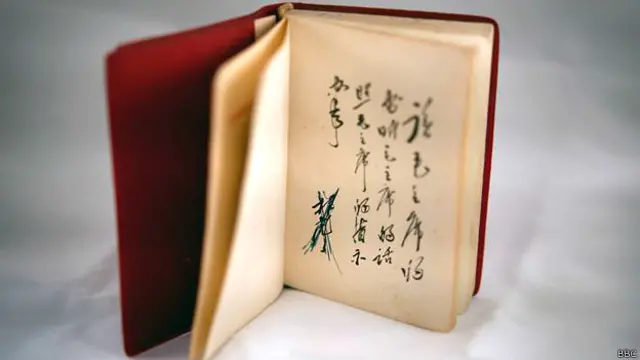 读毛主席的
书听毛主席的话
照毛主席的指示
办事
BBC